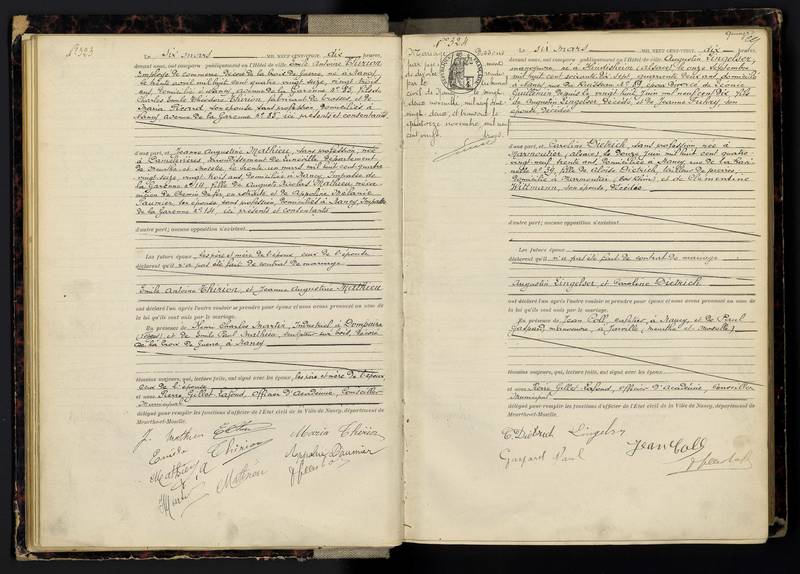 N° 323
Le six mars MIL NEUF CENT-VINGT, dix heures,
devant nous, ont comparu publiquement en l'Hôtel de ville: Emile Antoine Thirion
Employé de commerce, décoré de la Croix de Guerre, né à Nancy,
le trente avril mil huit cent quatre vingt onze, vingt huit
ans, domicilié à Nancy, avenue de la Garenne N° 85, fils de
Charles Emile Théodore Thirion, fabricant de brosses, et de
Maria Picard, son épouse, sans profession, domiciliés à
Nancy avenue de la Garenne N° 85, ici présents et consentants
d'une part, et Jeanne Augustine Mathieu, sans profession, née
à arrondissement de Lunéville, département
de Meurthe et Moselle, le trente un mars mil huit cent quatre
vingt onze, vingt huit ans, domiciliée à Nancy, Impasse de
la Garenne N° 14, fille de Auguste Nicolas Mathieu
décoré de la et de Appoline Mélanie
Daumier, son épouse, sans profession, domiciliés à Nancy, Impasse
de la Garenne N° 14, ici présents et consentants
d'autre part; aucune opposition n'existant.
Les futurs époux, les père et mère de l'époux, ceux de l'épouse
déclarent qu'il n'a pas été fait de contrat de mariage
Emile Antoine Thirion, et Jeanne Augustine Mathieu
ont déclaré l'un après l'autre vouloir se prendre pour époux et nous avons prononcé au nom de
la loi qu'ils sont unis par le mariage.
En présence de Henri Charles Industriel à Dompaire
(Vosges) et de Emile Paul Mathieu, sculpteur sur bois, décoré
de la Croix de Guerre, à Nancy
témoins majeurs, qui, lecture faite, ont signé avec les époux, les père et mère de l'époux
ceux de l'épouse
et nous Pierre Gillet-Lafond, officier d'Académie, Conseiller
Municipal
délégué pour remplir les fonctions d'officier de l'Etat civil de la Ville de Nancy, département de
Meurthe-et-Moselle.
J. Mathieu E Thirion Maria Thirion
Emile Thirion Appoline Daumier
Mathieu
N° 324
Mariage dissous
par jugement
de divorce rendu
par le tribunal
civil de Nancy le vingt
deux novembre mil neuf cent
vingt deux, et transcrit le
quatorze novembre mil neuf
cent vingt
Le six mars MIL NEUF CENT-VINGT, dix heures,
devant nous, ont comparu publiquement en l'Hôtel de ville: Augustin Lingelser,
manoeuvre, né à (Alsace) le onze septembre
mil huit cent soixante dix sept, quarante deux ans, domicilié
à Nancy, rue N° 19, époux divorcé de Léonie
depuis le vingt huit juin mil neuf cent dix, fils
de Augustin Lingelser, décédé, et de Jeanne son
épouse, décédée
d'une part, et Caroline Dietrich, sans profession, née à
Marmoutier (Alsace) le douze juin mil huit cent quatre
vingt neuf, trente ans, domiciliée à Nancy, rue de la
N° 39, fille de Aloïse Dietrich, tailleur de pierres,
domicilié à Marmoutier (Bas Rhin), et de Clémentine
Wittmann, son épouse, décédée
d'autre part; aucune opposition n'existant.
Les futurs époux
déclarent qu'il n'a pas été fait de contrat de mariage
Augustin Lingelser et Caroline Dietrich
ont déclaré l'un après l'autre vouloir se prendre pour époux et nous avons prononcé au nom de
la loi qu'ils sont unis par le mariage.
En présence de Jean Coll, cafetier, à Nancy, et de Paul
Gaspard, manoeuvre, à Jarville (Meurthe et Moselle)
témoins majeurs, qui, lecture faite, ont signé avec les époux
et nous Pierre Gillet-Lafond, officier d'Académie, Conseiller
Municipal
délégué pour remplir les fonctions d'officier de l'Etat civil de la Ville de Nancy, département de
Meurthe-et-Moselle.
C. Dietrich Lingelser
Gaspard Paul Jean Coll